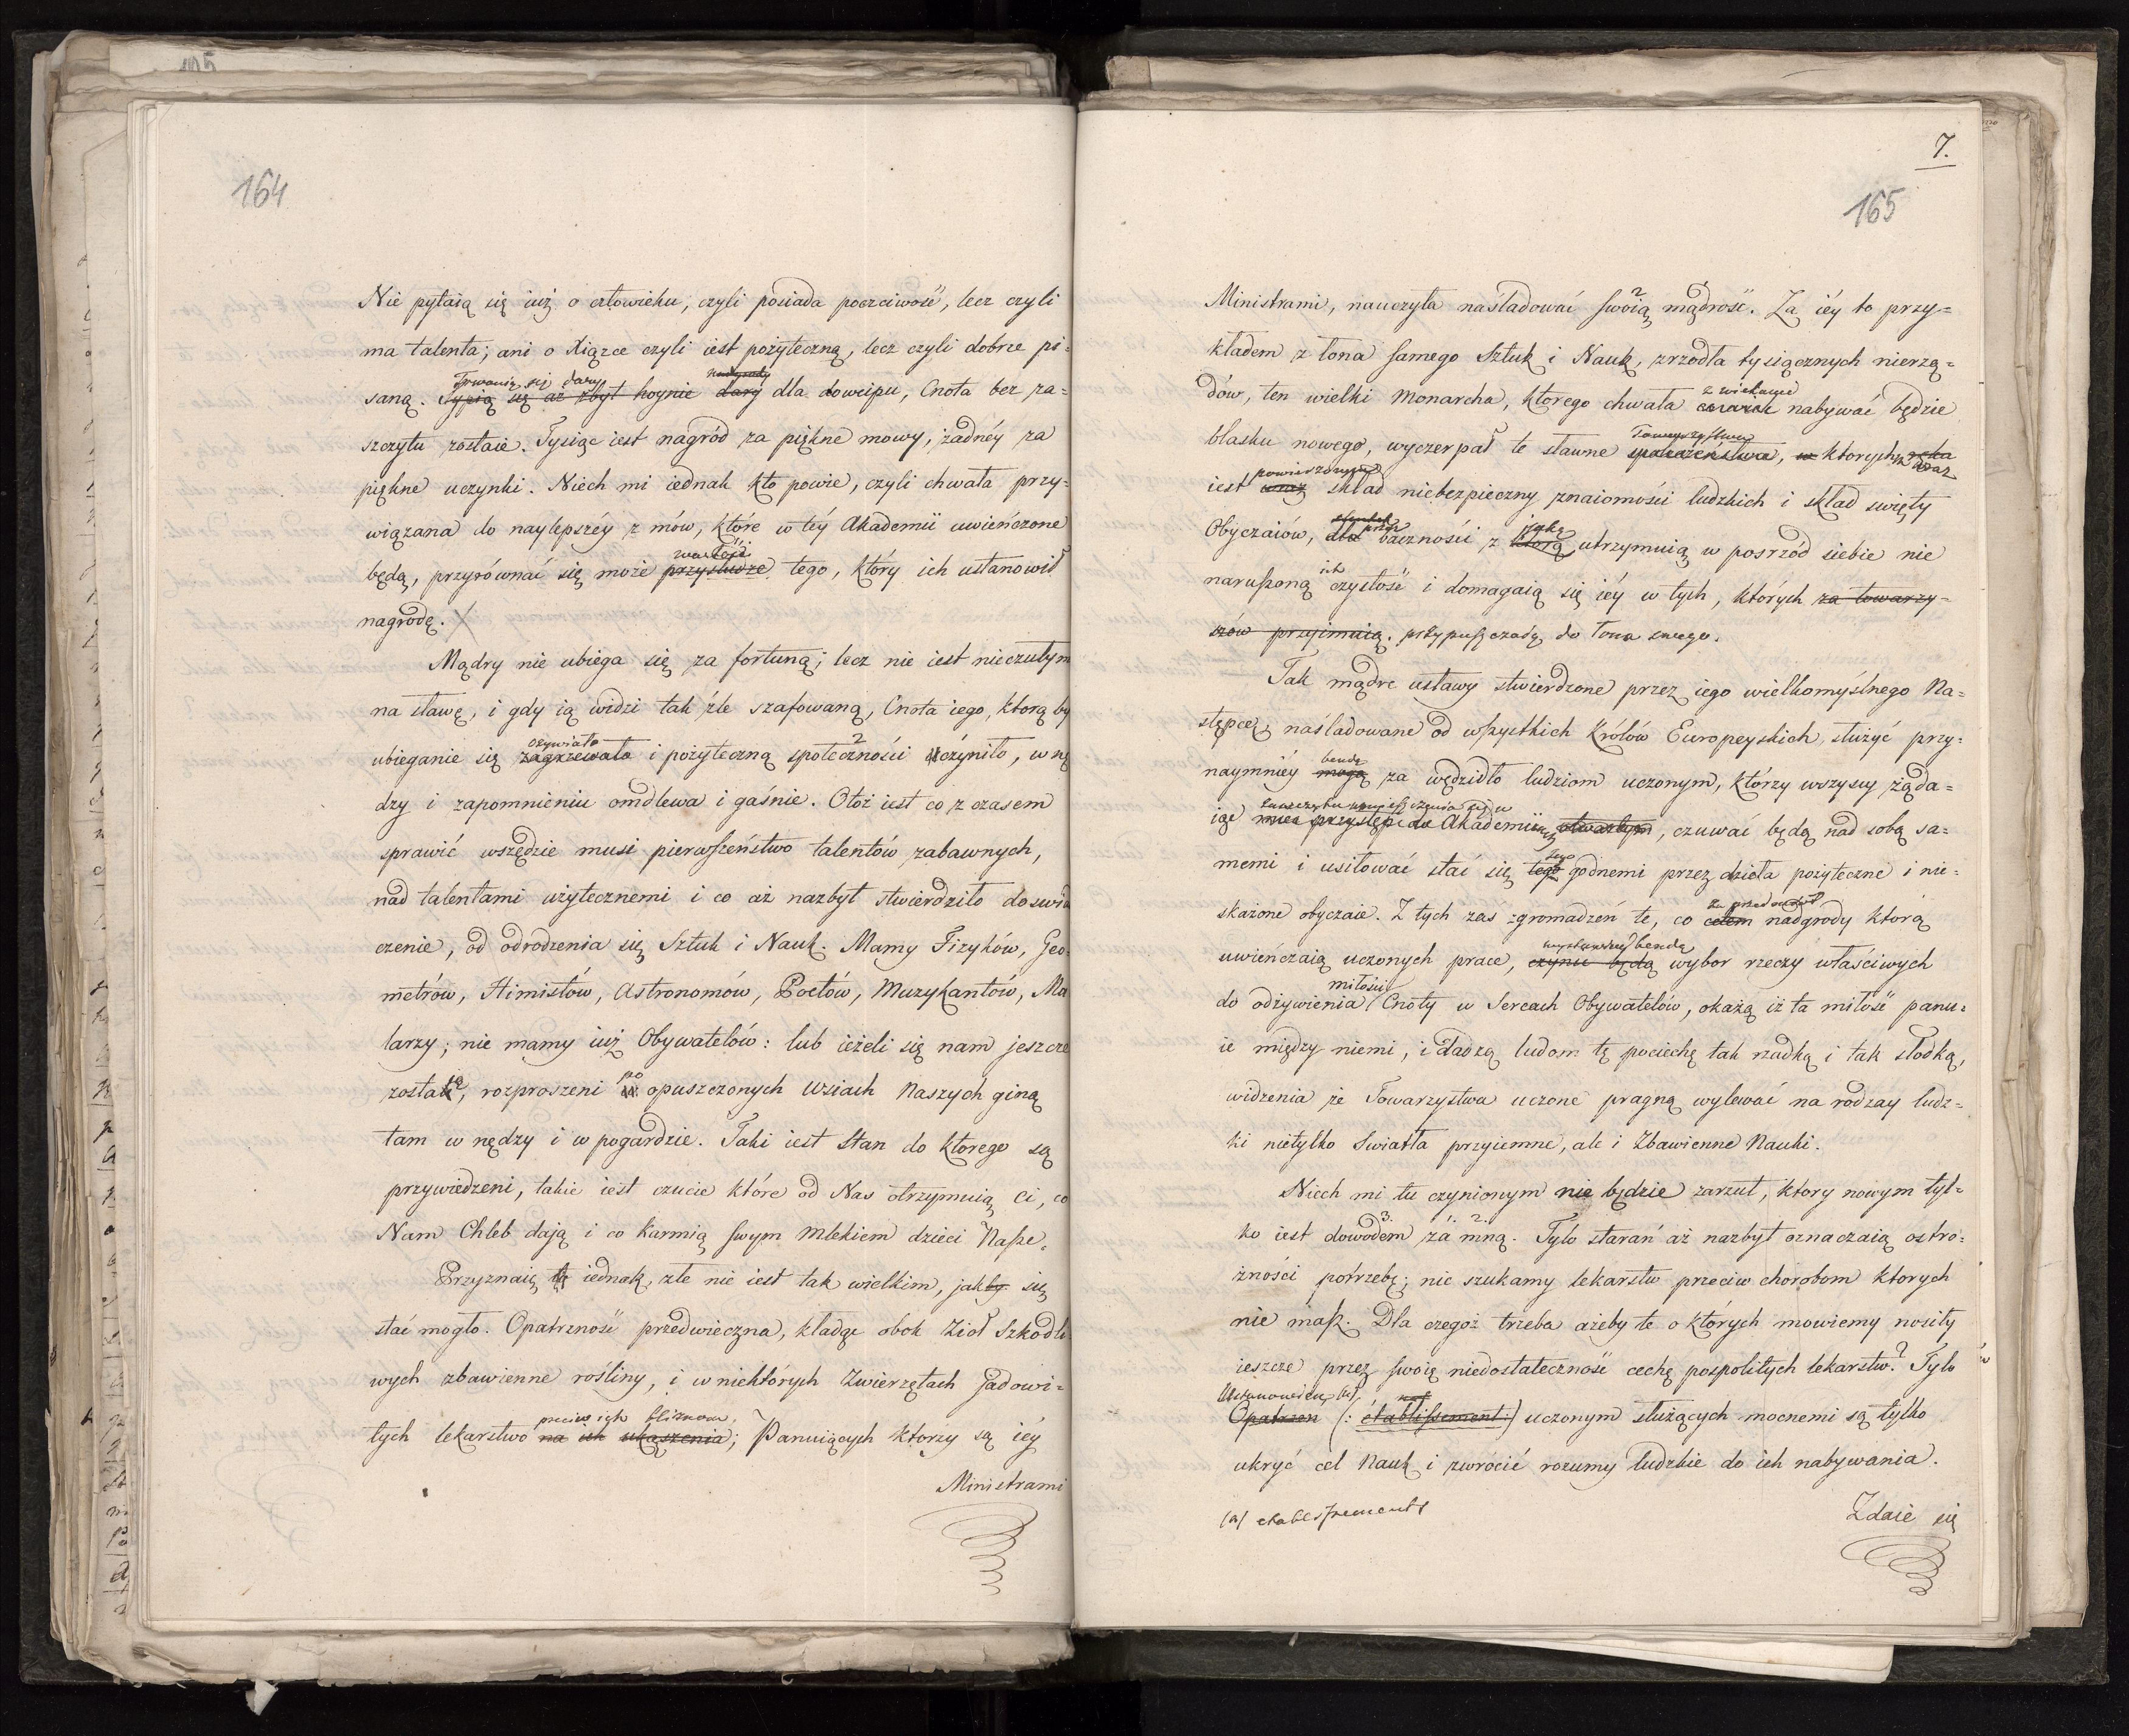 164
Nie pytaią się iuż o człowieku, czyli posiada poczciwość, lecz czyli
ma talenta; ani o Xiążce czyli iest pożyteczną, lecz czyli dobrze pi=
Trwonią się dary nadgrody
saną. Sypią się aż zbyt hoynie dary dla dowcipu, Cnota bez za=
szczytu zostaie. Tysiąc iest nagród za piękne mowy, żadnéy za
piękne uczynki. Niech mi iednak kto powie, czyli chwała przy=
wiązana do naylepszéy z mów, które w téy Akademii uwieńczone
wartości
będą, przyrównać się może przysłudze tego, który ich ustanowił
nagrodę. X
Mądry nie ubiega się za fortuną; lecz nie iest nieczułym
na sławę, i gdy ią widzi tak źle szafowaną, Cnota iego, którą by
ożywiało 2
ubieganie się zagrzewało i pożyteczną społeczności uczyniło, w nę
dzy i zapomnieniu omdlewa i gaśnie. Otoż iest co z czasem
sprawić wszędzie musi pierwszeństwo talentów zabawnych,
nad talentami użytecznemi i co aż nazbyt stwierdziło doswiad
czenie, od odrodzenia się Sztuk i Nauk. Mamy Fizyków, Geo=
metrów, Himistów, Astronomów, Poetów, Muzykantów, Ma
larzy; nie mamy iuż Obywatelów: lub ieżeli się nam jeszcze
ią po
zostali, rozproszeni w opuszczonych Wsiach Naszych giną
tam w nędzy i w pogardzie. Taki iest Stan do ktorego są
przywiedzeni, takie iest czucie które od Nas otrzymuią Ci, co
Nam Chleb dają i co karmią swym Mlekiem dzieci Nasze.
Przyznaię iednak, złe nie iest tak wielkim, jakby się
stać mogło. Opatrzność przedwieczna, kładąc obok Zioł Szkodli
wych zbawienne rośliny, i w niektórych Zwierzętach Jadowi=
przeciw ich bliznom
tych lekarstwo na ich ukąszenia; Panuiących ktorzy są iéy
Ministrami
7.
165
2 1
Ministrami, nauczyła naśladować swoią mądrość. Za iéy to przy=
kładem z łona samego Sztuk i Nauk, zrzodła tysiącznych nierzą=
z wiekami
dów, ten wielki Monarcha, ktorego chwała coraz nabywać będzie
Towarzystwa
blasku nowego, wyczerpał te sławne społeczeństwa, w ktorych ręka
powierzonym
iest oraz skład niebezpieczny znaiomości ludzkich i skład święty
przez jaką
Obyczaiów, dla baczności z którą utrzymuią w posrzód siebie nie
ich
naruszoną czystość i domagaią się iéy w tych, których za towarzy=
szów przyimuią. przypuszczaią do łona swego.
Tak mądre ustawy stwierdzone przez iego wielkomyślnego Na=
stępcę, naśladowane od wszystkich Królów Europeyskich, służyć przy=
bendą
naymniéy mogą za wędzidło ludziom uczonym, którzy wszyscy żąda=
iąc mieć przystęp do Akademii otwartym, czuwać będą nad sobą sa=
tego
memi i usiłować stać się tego godnemi przez dzieła pożyteczne i nie=
za przedmiot
skażone obyczaie. Z tych zas zgromadzeń te, co celem nadgrody którą
bendą
uwieńczaią uczonych prace, czynić będą wybor rzeczy właściwych
miłości
do ożywienia Cnoty w Sercach Obywatelów, okażą iż ta miłość panu=
ie między niemi, i dadzą ludom tę pociechę tak rzadką i tak słodką,
widzenia że Towarzystwa uczone pragną wylewać na rodzay ludz=
ki nietylko Swiatła przyiemne, ale i Zbawienne Nauki.
Niech mi tu czynionym nie będzie zarzut, ktory nowym tyl=
3. 1. 2.
ko iest dowodem za mną. Tylo starań aż nazbyt oznaczaią ostro=
żności potrzebę; nie szukamy lekarstw przeciw chorobom ktorych
nie masz. Dla czegoż trzeba ażeby te o których mowiemy nosiły
ieszcze przez swoią niedostateczność cechę pospolitych lekarstw? Tylo
Ustanowień (a)
Opatrzeń (: établissement:) uczonym służących mocnemi są tylko
ukryć cel Nauk i zwrócić rozumy ludzkie do ich nabywania.
(a) etablissements
Zdaie się